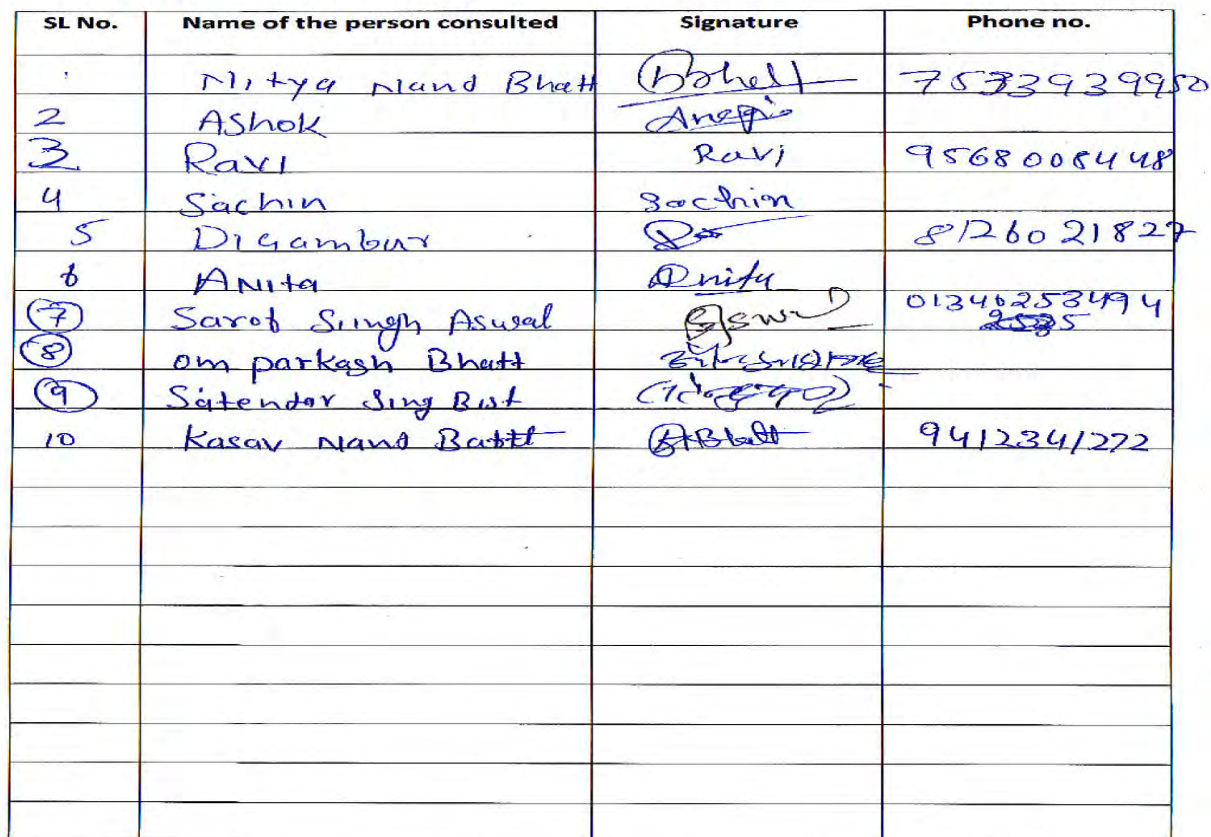 SL No. Name of the person consulted Signature Phone no.
Nitya Nand Bhatt 7533939950
2 Ashok
3. Ravi Ravi 9568008448
4 Sachin Sachin
5 Digambur 8126021827
6 Anita Anita
7 Sarof Suingh Asugal 01346253494
8 om parkash Bhatt
9 Satendar Sing Bist
10 Kasav Nand Babtt 9412341272